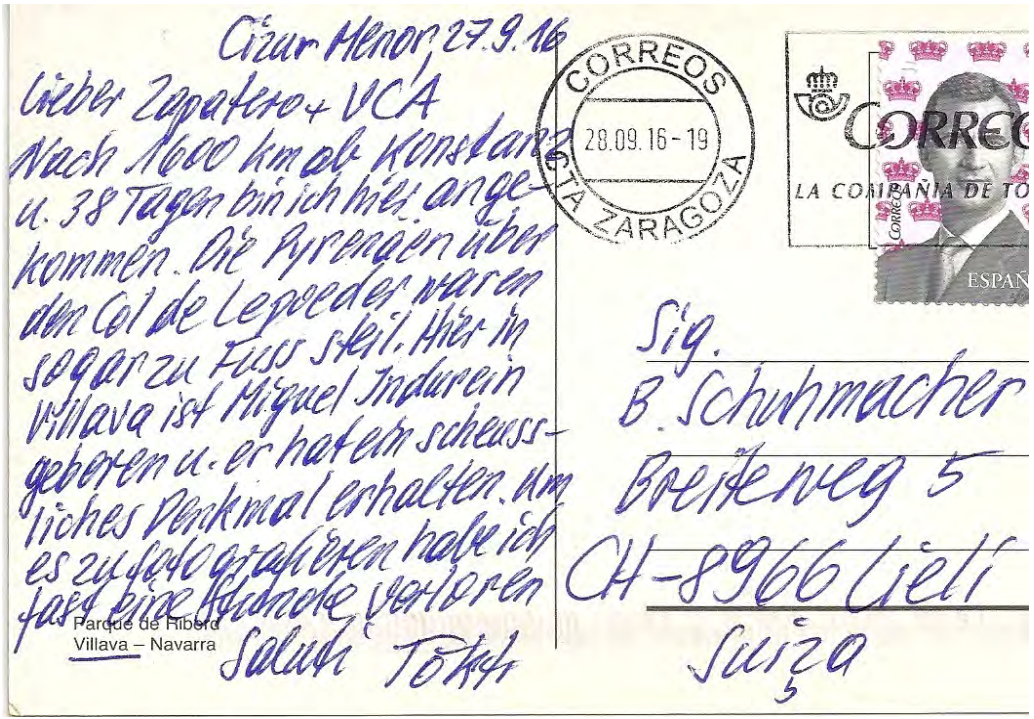 Cizur Menor, 27.9.16
Lieber Zapatero + VCA
Nach 1600 km ab Konstanz
u. 38 Tagen bin ich hier ange-
kommen. Die Pyrenäen über
den Col de Lepoeder waren
sogar zu Fuss steil. Hier in
Villava ist Miguel Indurein
geboren u. er hat ein scheuss-
liches Denkmal erhalten. Um
es zu fotografieren habe ich
fast eine Stunde verloren
Saluti
Parque de Ribord
Villava – Navarra
CORREOS
28.09.16-19
CTA ZARAGOZA
CORREO
LA COMPAÑIA DE TO
CORREOS
ESPAÑ
Sig.
B. Schuhmacher
Breiteweg 5
CH-8966 Lieli
Suiza